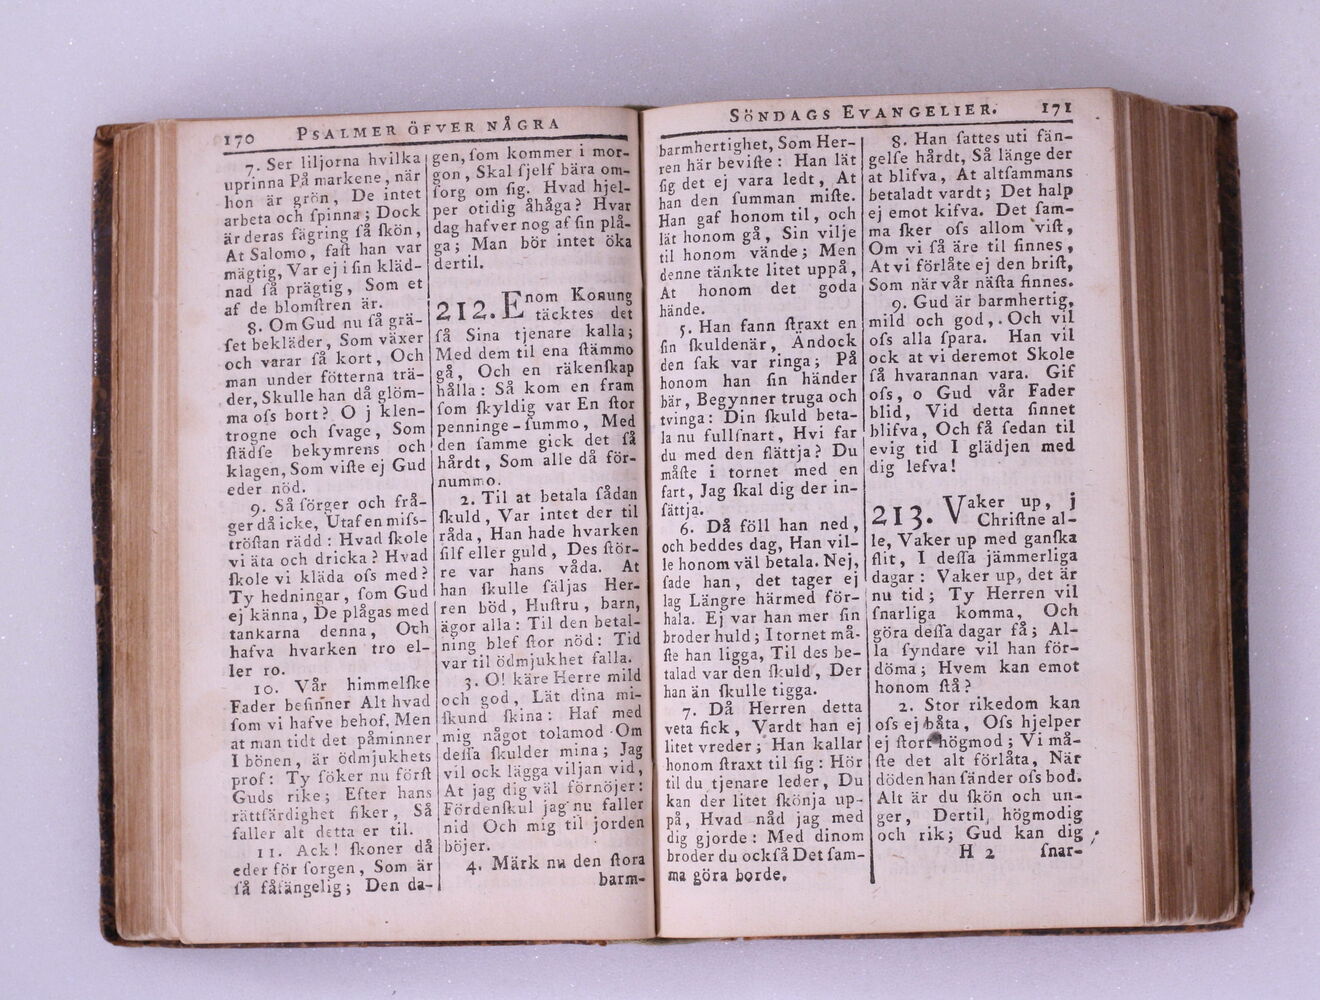 170 PSALMER ÖFVER NÅGRA
7. Ser liljorna hvilka
uprinna På markene, når
hon är grön, De intet
arbeta och ſpinna; Dock
är deras fägring ſå ſkön,
At Salomo, faſt han var
mägtig, Var ej i ſin kläd-
nad ſå prägtig, Som et
af de blomſtren är.
8. Om Gud nu ſå grä-
ſet bekläder, Som växer
och varar ſå kort, Och
man under fötterna trä-
der, Skulle han då glöm-
ma oſs bort? O j klen-
trogne och ſvage, Som
ſtädſe bekymrens och
klagen, Som viſte ej Gud
eder nöd.
9. Så ſörger och frå-
ger då icke, Utaf en miſs-
tröſtan rädd: Hvad ſkole
vi äta och dricka? Hvad
ſkole vi kläda oſs med?
Ty hedningar, ſom Gud
ej känna, De plågas med
tankarna denna, Och
hafva hvarken tro el-
ler ro.
10. Vår himmelſke
Fader beſinner Alt hvad
ſom vi hafve behof, Men
at man tidt det påminner
I bönen, är ödmjukhets
prof: Ty ſöker nu förſt
Guds rike; Efter hans
rättfärdighet fiker, Så
faller alt detta er til.
11. Ack! ſkoner då
eder för ſorgen, Som är
ſå fåfängelig; Den da-
gen, ſom kommer i mor-
gon, Skal ſjelf bära om-
ſorg om ſig. Hvad hjel-
per otidig åhåga? Hvar
dag hafver nog af ſin plå-
ga; Man bör intet öka
dertil.
212. Enom Konung
täcktes det
ſå Sina tjenare kalla;
Med dem til ena ſtämmo
gå, Och en räkenſkap
hålla: Så kom en fram
ſom ſkyldig var En ſtor
penninge-ſummo, Med
den ſamme gick det ſå
hårdt, Som alle då för-
nummo.
2. Til at betala ſådan
ſkuld, Var intet der til
råda, Han hade hvarken
ſilf eller guld, Des ſtör-
re var hans våda. At
han ſkulle ſäljas Her-
ren böd, Huſtru, barn,
ägor alla: Til den betal-
ning blef ſtor nöd: Tid
var til ödmjukhet falla.
3. O! käre Herre mild
och god, Lät dina mi-
ſkund ſkina: Haf med
mig något tolamod Om
deſſa ſkulder mina; Jag
vil ock lägga viljan vid,
At jag dig väl förnöjer:
Fördenſkul jag nu faller
nid Och mig til jorden
böjer.
4. Märk nu den ſtora
barm-
SÖNDAGS EVANGELIER. 171
barmhertighet, Som Her-
ren här beviſte: Han lät
ſig det ej vara ledt, At
han den ſumman miſte.
Han gaf honom til, och
lät honom gå, Sin vilje
til honom vände; Men
denne tänkte litet uppå,
At honom det goda
hände.
5. Han fann ſtraxt en
ſin ſkuldenär, Ändock
den ſak var ringa; På
honom han ſin händer
bär, Begynner truga och
tvinga: Din ſkuld beta-
la nu fullſnart, Hvi far
du med den flättja? Du
måſte i tornet med en
fart, Jag ſkal dig der in-
ſättja.
6. Då föll han ned,
och beddes dag, Han vil-
le honom väl betala. Nej,
ſade han, det tager ej
lag Längre härmed för-
hala. Ej var han mer ſin
broder huld; I tornet må-
ſte han ligga, Til des be-
talad var den ſkuld, Der
han än ſkulle tigga.
7. Då Herren detta
veta fick, Vardt han ej
litet vreder; Han kallar
honom ſtraxt til ſig: Hör
til du tjenare leder, Du
kan der litet ſkönja up-
på, Hvad nåd jag med
dig gjorde: Med dinom
broder du ockſå Det ſam-
ma göra borde.
8. Han ſattes uti fän-
gelſe hårdt, Så länge der
at blifva, At altſammans
betaladt vardt; Det halp
ej emot kifva. Det ſam-
ma ſker oſs allom viſt,
Om vi ſå äre til ſinnes,
At vi förlåte ej den briſt,
Som när vår näſta finnes.
9. Gud är barmhertig,
mild och god, Och vil
oſs alla ſpara. Han vil
ock at vi deremot Skole
ſå hvarannan vara. Gif
oſs, o Gud vår Fader
blid, Vid detta ſinnet
blifva, Och få ſedan til
evig tid I glädjen med
dig lefva!
213. Vaker up, j
Chriſtne al-
le, Vaker up med ganſka
flit, I deſſa jämmerliga
dagar: Vaker up, det är
nu tid; Ty Herren vil
ſnarliga komma, Och
göra deſſa dagar få; Al-
la ſyndare vil han för-
döma; Hvem kan emot
honom ſtå?
2. Stor rikedom kan
oſs ej båta, Oſs hjelper
ej ſtort högmod; Vi må-
ſte det alt förlåta, När
döden han ſänder oſs bod.
Alt är du ſkön och un-
ger, Dertil, högmodig
och rik; Gud kan dig
H 2 ſnar-